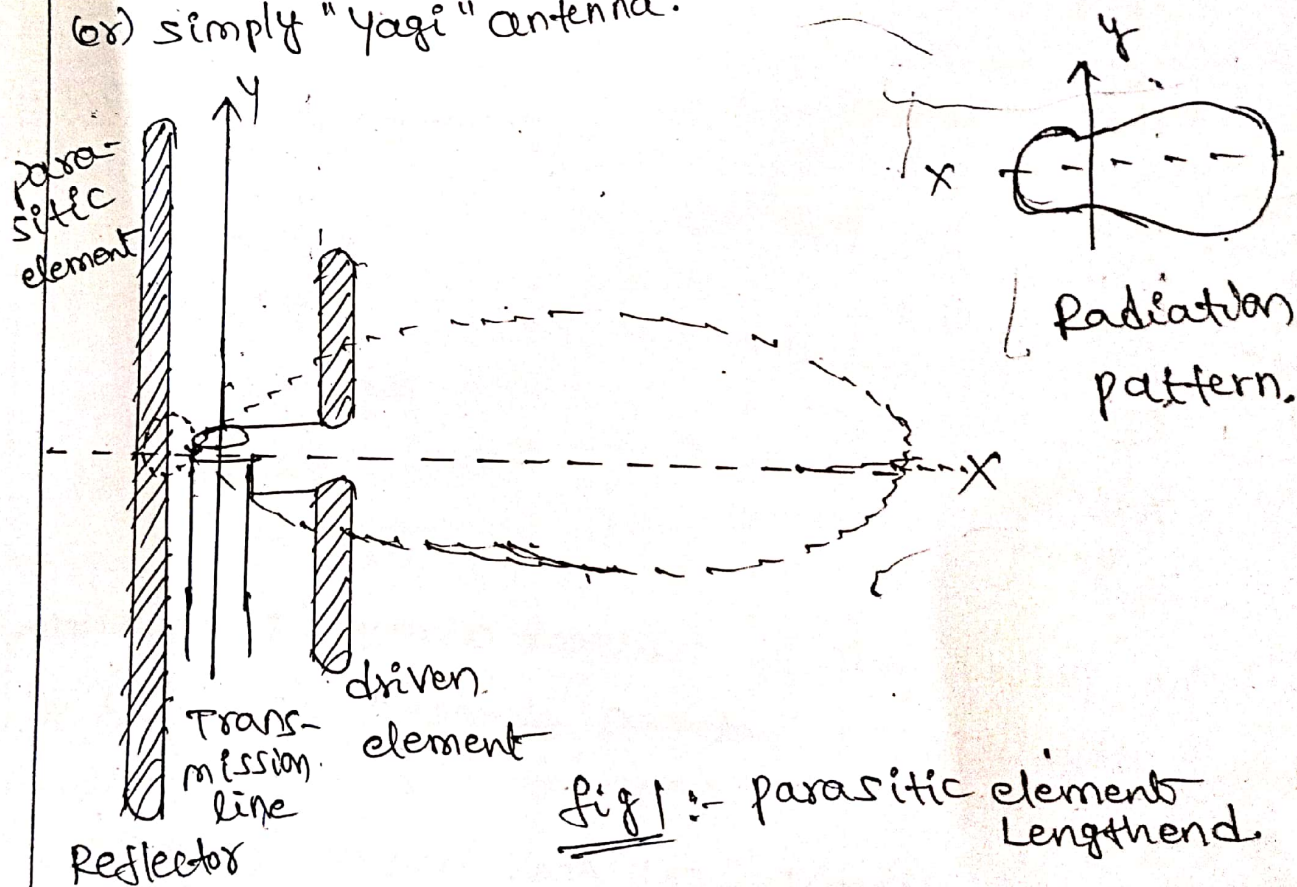 (or) simply "Yagi" antenna.
Y
y
para-
sitic
element
X
Radiation
pattern.
X
driven
element
Trans-
mission
line
fig 1 :- parasitic element
Lengthend.
Reflector